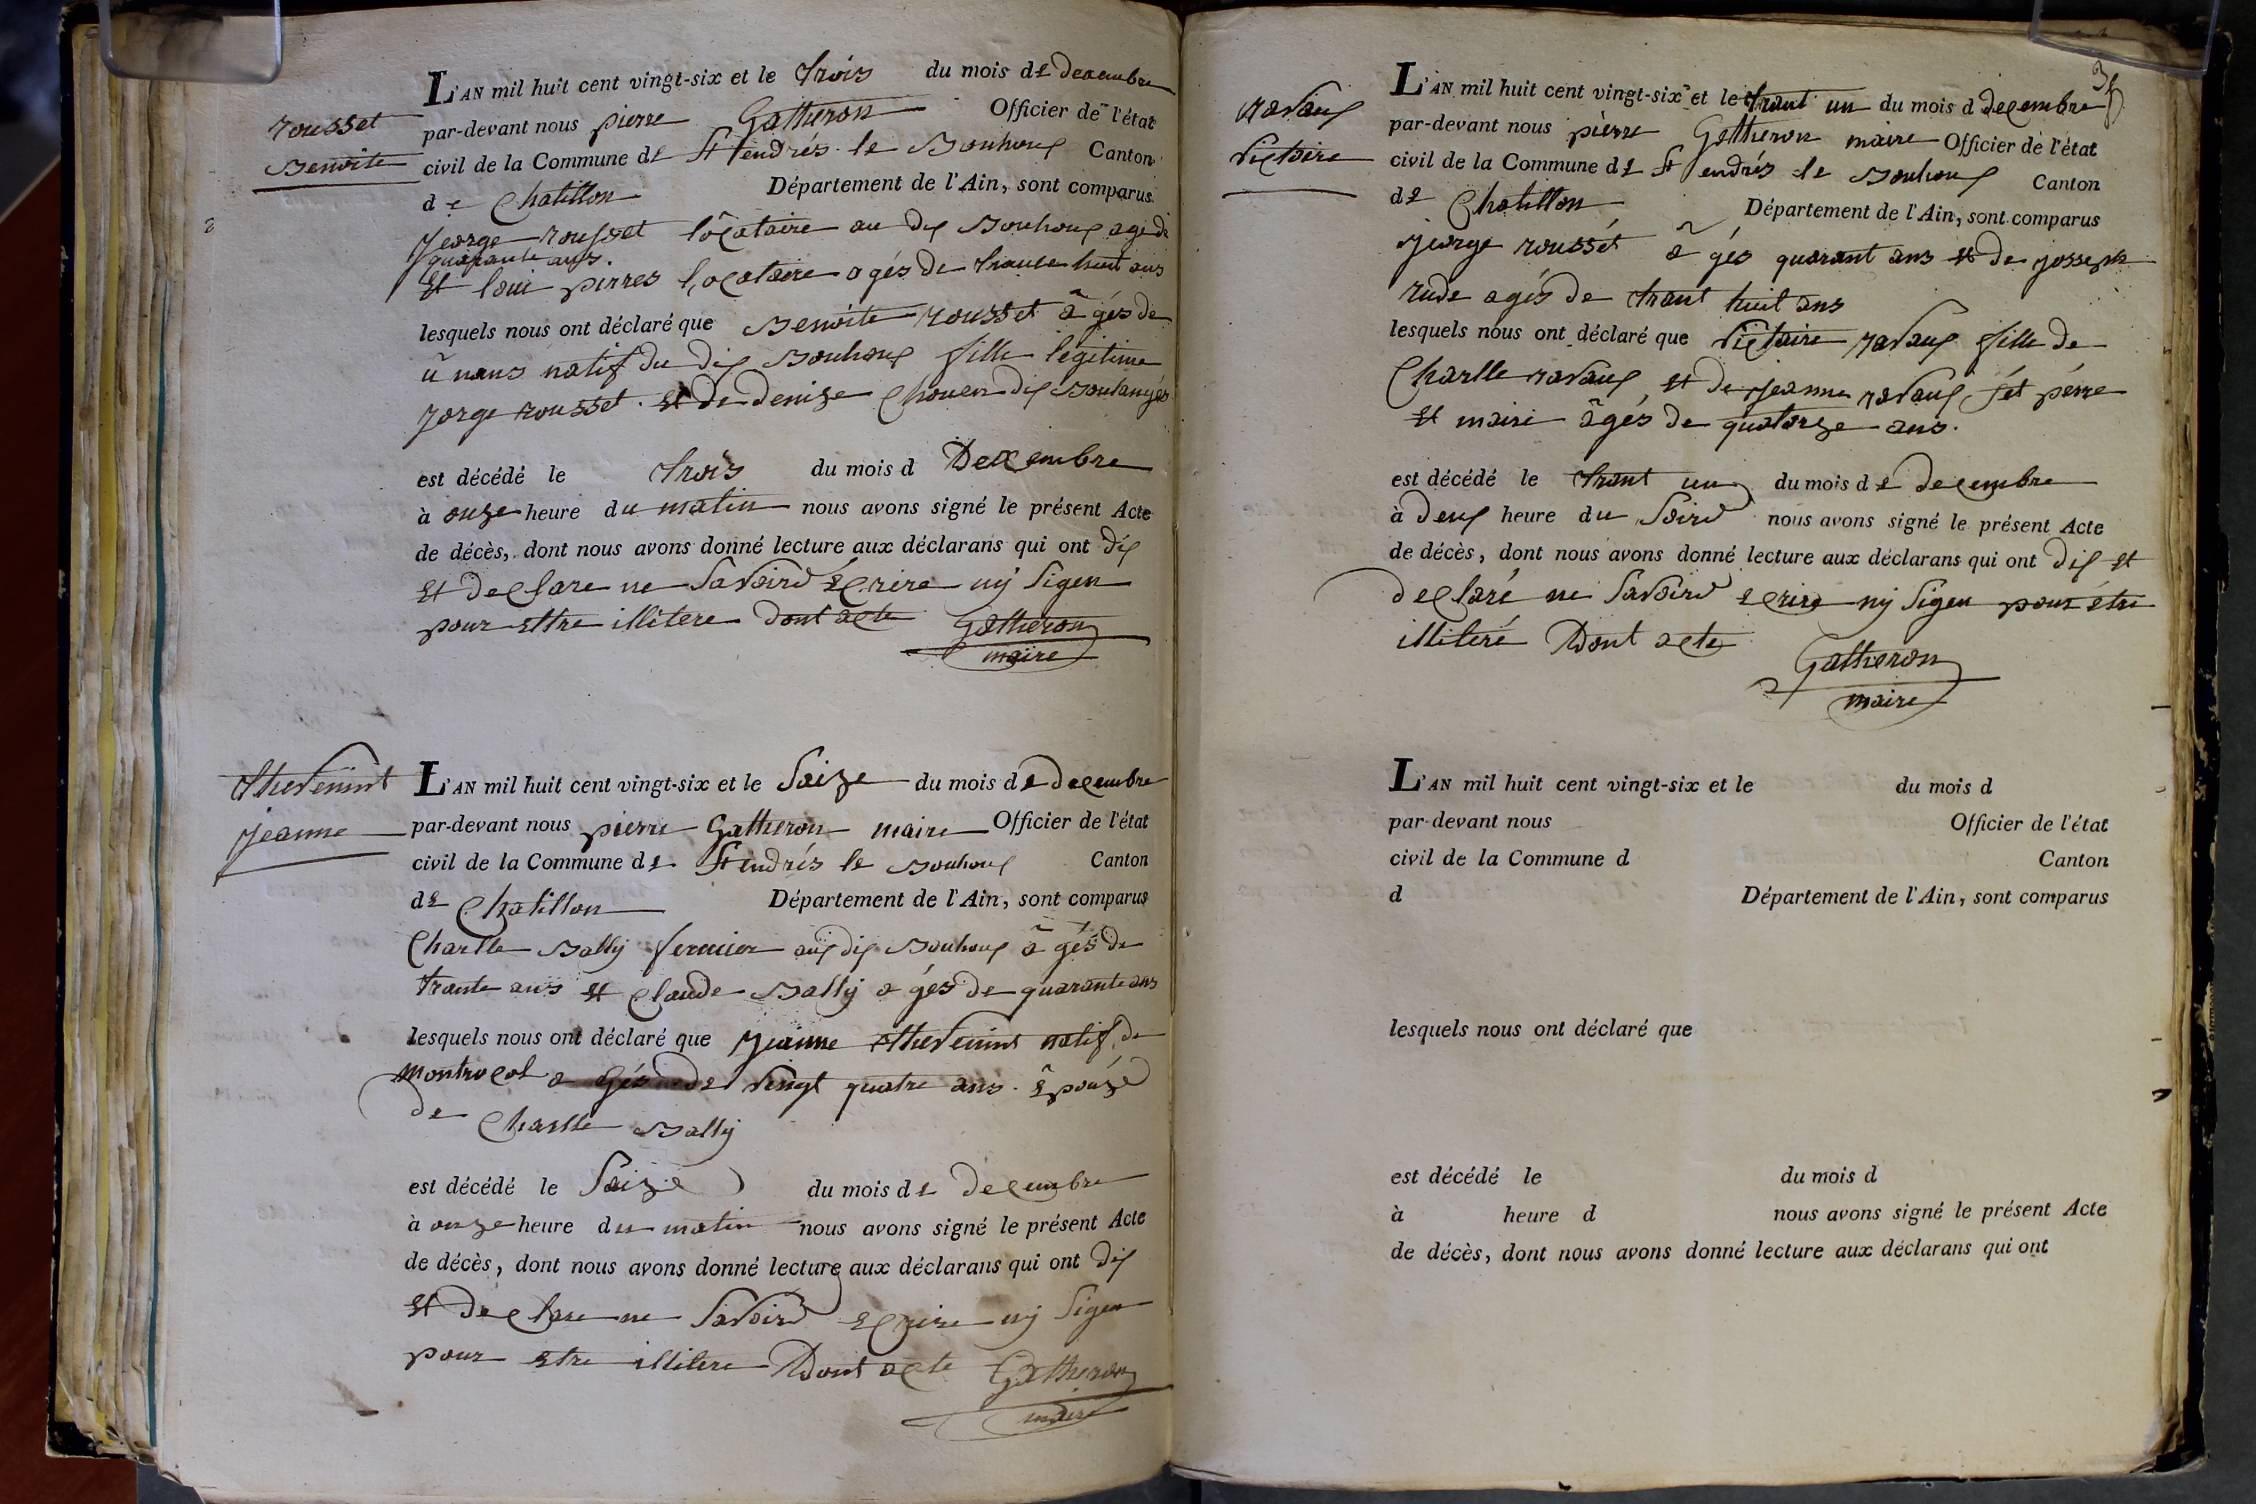 rousset
Benoite
L'AN mil huit cent vingt-six et le trois du mois de decembre
par-devant nous pierre Gatheron Officier de l'état
civil de la Commune de St endrés le Bouhoux Canton
de Chatillon Département de l'Ain, sont comparus
jeorge rousset locataire au dix Bouhoux age de
quarante ans.
et loui pirres locataire agés de trante huit ans
lesquels nous ont déclaré que Benoite rousset âgés de
un ans natif du dix Bouhoux fille legitime
jorge rousset et de denize
est décédé le trois du mois d Decembre
à onze heure du matin nous avons signé le présent Acte
de décès, dont nous avons donné lecture aux déclarans qui ont dix
et declare ne savoird ecrire ny sigen
pour ettre illitere dont acte Gatheron
maire
thevenint
jeanne
L'AN mil huit cent vingt-six et le saize du mois de decembre
par-devant nous pierre Gatheron maire Officier de l'état
civil de la Commune de St endrés le Bouhoux Canton
de Chatillon Département de l'Ain, sont comparus
Charlle Bally fermier aux dix Bouhoux âgés de
trante ans et claude Bally agés de quarante ans
lesquels nous ont déclaré que jeanne thevenint natif de
montracol agés de vingt quatre ans. épouze
de Charlle Bally
est décédé le saize du mois de decembre
à onze heure du matin nous avons signé le présent Acte
de décès, dont nous avons donné lecture aux déclarans qui ont dix
et declare ne savoird ecrire ny sigen
pour etre illitere Dont acte Gatheron
maire
ravaux
victoire
L'AN mil huit cent vingt-six et le trant un du mois d decembre
par-devant nous pierre Gatheron maire Officier de l'état
civil de la Commune de St endrés le Bouhoux Canton
de Chatillon Département de l'Ain, sont comparus
jeorge roussét âgés quarant ans et de josseph
rude agés de trant huit ans
lesquels nous ont déclaré que victoire ravaux fille de
Charlle ravaux et de jeanne ravaux sét pérre
et maire âgés de quatorze ans.
est décédé le trant un du mois de decembre
à deux heure du soird nous avons signé le présent Acte
de décès, dont nous avons donné lecture aux déclarans qui ont dix et
declaré ne savoird ecrire ny sigen pour étre
illiteré Dont acte
Gatheron
maire
L'AN mil huit cent vingt-six et le du mois d
par-devant nous Officier de l'état
civil de la Commune d Canton
d Département de l'Ain, sont comparus
lesquels nous ont déclaré que
est décédé le du mois d
à heure d nous avons signé le présent Acte
de décès, dont nous avons donné lecture aux déclarans qui ont